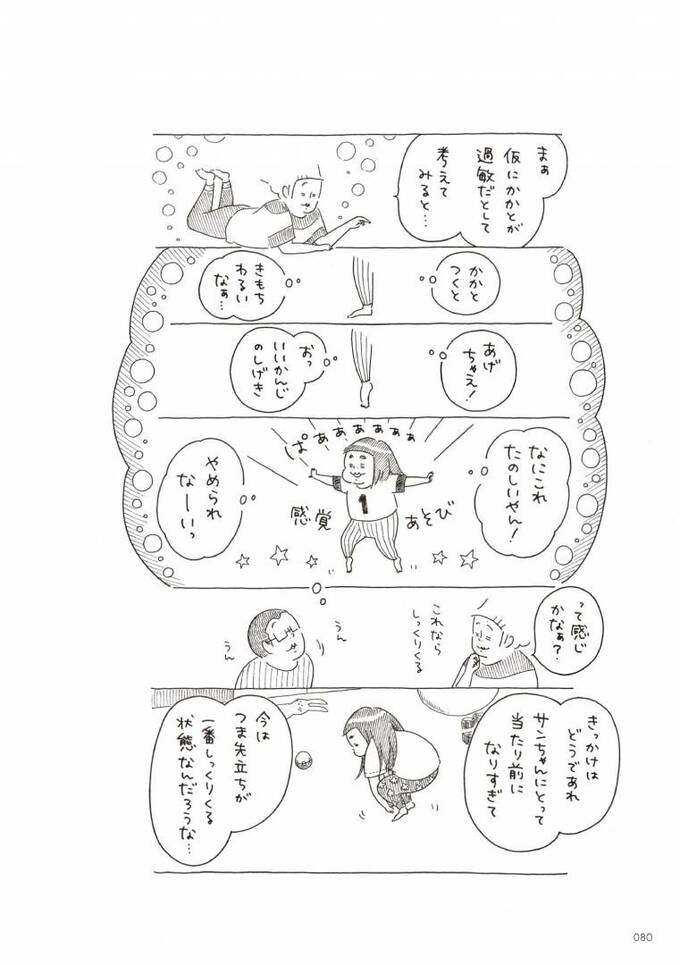 まぁ
仮にかかとが
過敏だとして
考えて
みると…
かかと
つくと
きもち
わるい
なぁ…
あげ
ちゃえ！
おっ
いいかんじ
のしげき
ぱぁぁぁぁぁぁ
なにこれ
たのしいやん！
1
感覚
あそび
やめられ
なーいっ
って感じ
かなぁ？
これなら
しっくりくる
うん
うん
きっかけは
どうであれ
サンちゃんにとって
当たり前に
なりすぎて
今は
つま先立ちが
一番しっくりくる
状態なんだろうな…
080